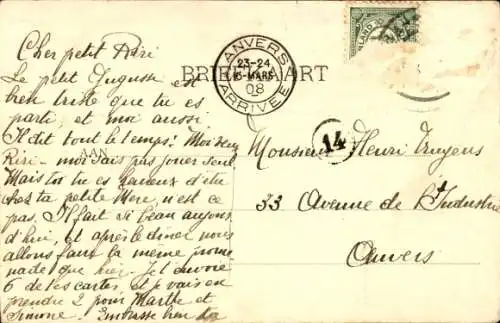 Cher petit Riri
Le petit Auguste est
bien triste que tu es
parti, et moi aussi.
Il dit tout le temps! Moi veux
Riri - moi vais pas jouer seul
Mais toi tu es heureux d'être
chez ta petite Mère, n'est ce
pas. Il fait si beau aujour
d'hui, et après le dîner nous
allons faire la même prome
nade que hier. Je t'envoie
6 de tes cartes, et je vais en
prendre 2 pour Marthe et
Simone. Embrasse bien ta
ANVERS
23-24
MARS
08
ARRIVÉE
BRIEFKAART
AAN
14
Monsieur Henri Truyens
33 Avenue de l'Industrie
Anvers